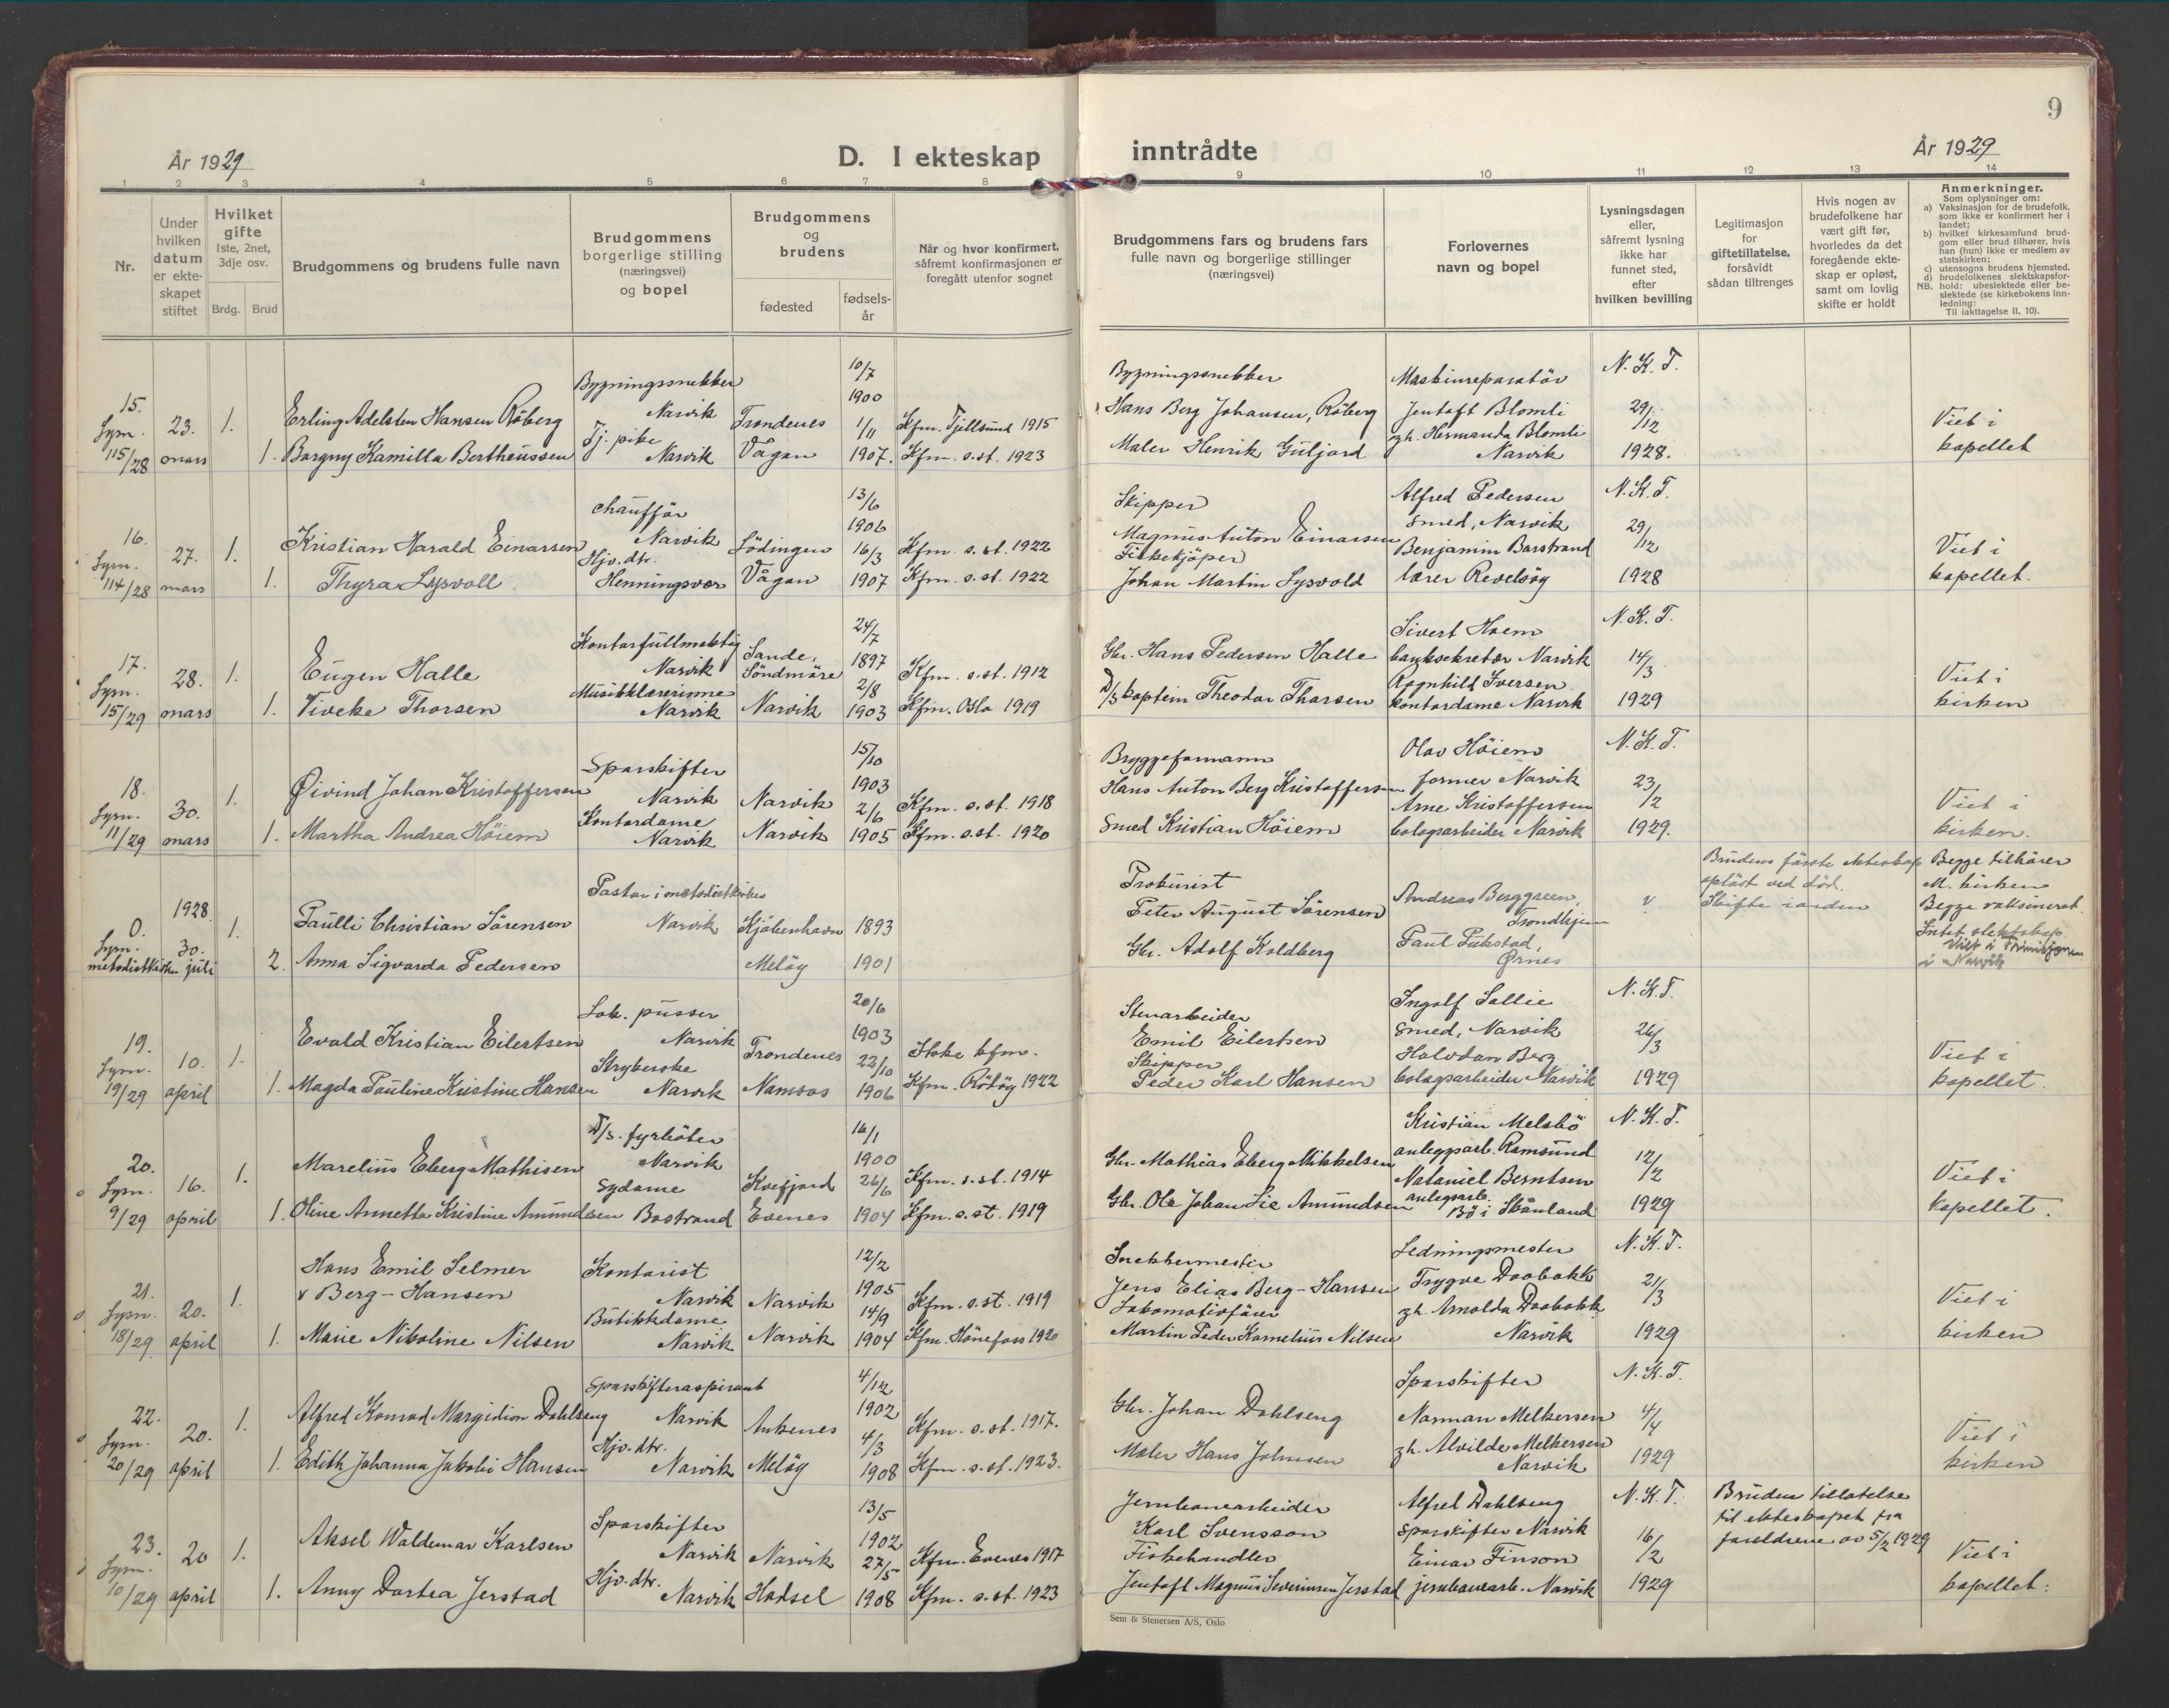 9
År 1929
D. I ekteskap inntrådte
År 1929
1 2 3 4 5 6 7 8 9 10 11 12 13 14
Nr.
Under hvilken datum er ekteskapet stiftet
Hvilket gifte
1ste, 2net, 3dje osv.
Brdg. Brud
Brudgommens og brudens fulle navn
Brudgommens borgerlige stilling (næringsvei) og bopel
Brudgommens og brudens
fødested
fødselsår
Når og hvor konfirmert, såfremt konfirmasjonen er foregått utenfor sognet
Brudgommens fars og brudens fars fulle navn og borgerlige stillinger (næringsvei)
Forlovernes navn og bopel
Lysningsdagen eller, såfremt lysning ikke har funnet sted, efter hvilken bevilling
Legitimasjon for giftetillatelse, forsåvidt sådan tiltrenges
Hvis nogen av brudefolkene har vært gift før, hvorledes da det foregående ekteskap er opløst, samt om lovlig skifte er holdt
Anmerkninger.
Som oplysninger om:
a) Vaksinasjon for de brudefolk, som ikke er konfirmert her i landet;
b) hvilket kirkesamfund brudgom eller brud tilhører, hvis han (hun) ikke er medlem av statskirken;
c) utensogns brudens hjemsted.
d) brudefolkenes slektskapsforhold: ubeslektede eller beslektede (se kirkebokens innledning:
NB. Til iakttagelse II, 10).
15. Lysn. 115/28
23. mars
1. Erling Adelsten Hansen Röberg
Bygningssnekker Narvik
Trondenes 10/7 1900
Kfm. Tjellsund 1915
Bygningssnekker
Hans Berg Johansen, Röberg
Maskinreparatör
Jentoft Blomli
N. K. T.
29/12
1928.
1. Borgny Kamilla Bertheussen
Tj. pike Narvik
Vågan 1/11 1907.
Kfm. s.st. 1923
Maler Henrik Guljord
og h. Hermanda Blomli
Narvik
Viet i kapellet
16. Lysn. 114/28
27. mars
1. Kristian Harald Einarsen
Chaufför Narvik
Lödingen 13/6 1906
Kfm. s.st. 1922
Skipper
Magnus Anton Einarsen
Alfred Pedersen
smed, Narvik
N. K. T.
29/12
1928
1. Thyra Lysvoll
Hjv. dtr. Henningsvær
Vågan 16/3 1907
Kfm. s.st. 1922
Fiskekjöper
Johan Martin Lysvold
Benjamin Barstrand
lærer Revelsöy
Viet i kapellet.
17. Lysn. 15/29
28. mars
1. Eugen Halle
Kontorfullmektig Narvik
Sande, Söndmöre 24/7 1897
Kfm. s.st. 1912
Gbr. Hans Pedersen Halle
Sivert Hoem
banksekretær Narvik
N. K. T.
14/3
1929
1. Viveke Thorsen
Musikklærerinne Narvik
Narvik 2/8 1903
Kfm. Oslo 1919
D/S kaptein Theodor Thorsen
Ragnhild Iversen
kontordame Narvik
Viet i kirken
18. Lysn. 11/29
30. mars
1. Øivind Johan Kristoffersen
Sporskifter Narvik
Narvik 15/10 1903
Kfm. s.st. 1918
Bryggeformann
Hans Anton Berg Kristoffersen
Olav Höiem
former Narvik
N. K. T.
23/2
1929.
1. Martha Andrea Höiem
Kontordame Narvik
Narvik 2/6 1905
Kfm. s.st. 1920
Smed Kristian Höiem
Arne Kristoffersen
bolagsarbeider Narvik
Viet i kirken.
0. Lysn. metodistkirken
1928 30. juli
1. Paulli Christian Sörensen
Pastor i metodistkirken Narvik
Kjöbenhavn 1893
Prokurist
Peter August Sörensen
Andreas Berggreen,
Trondhjem
2. Anna Sigvarda Pedersen
Melöy 1901
Gbr. Adolf Koldberg
Paul Pukstad,
Ørnes
Brudens förste ekteskap oplöst ved död.
Skifte i orden
Begge tilhörer M. kirken
Begge vaksinert.
Intet slektskap
Viet i
i Narvik
19. Lysn. 19/29
10. april
1. Evald Kristian Eilertsen
Lok. pusser Narvik
Trondenes 20/6 1903
Ikke kfm.
Stenarbeider
Emil Eilertsen
Ingolf Sollie
smed, Narvik
N. K. T.
26/3
1929
1. Magda Pauline Kristine Hansen
Strykerske Narvik
Namsos 23/10 1906
Kfm. Rödöy 1922
Skipper
Peder Karl Hansen
Halvdan Berg
bolagsarbeider Narvik
Viet i kapellet.
20. Lysn. 9/29
16. april
1. Marelius Eberg Mathisen
D/S. fyrböter Narvik
Kvefjord 16/1 1900
Kfm. s.st. 1914
Gbr. Mathias Eberg Mikkelsen
Kristian Melsbö
anleggsarb. Ramsund
N. K. T.
12/2
1929
1. Oline Annette Kristine Amundsen
Sydame Bostrand
Evenes 26/6 1904
Kfm. s.st. 1919
Gbr. Ole Johan Lie Amundsen
Nataniel Berntsen
anlegsarb. Bö i Skånland
Viet i kapellet.
21. Lysn. 18/29
20. april
1. Hans Emil Selmer
v Berg-Hansen
Kontorist Narvik
Narvik 12/2 1905
Kfm. s.st. 1919
Snekkermester
Jens Elias Berg-Hansen
Ledningsmester
Trygve Doobakk
N. K. T.
21/3
1929
1. Marie Nikoline Nilsen
Butikkdame Narvik
Narvik 14/9 1904
Kfm. Hönefoss 1920
Lokomotivförer
Martin Peder Kornelius Nilsen
og h. Arnolda Doobakk
Narvik
Viet i kirken
22. Lysn. 20/29
20. april
1. Alfred Konrad Margidion Dahlseng
Sporskifteraspirant Narvik
Ankenes 4/12 1902
Kfm. s.st. 1917.
Gbr. Johan Dahlseng
Sporskifter
Norman Melkersen
N. K. T.
4/4
1929
1. Edith Johanna Jakobi Hansen
Hjv. dtr. Narvik
Melöy 4/3 1908
Kfm. s.st. 1923.
Maler Hans Johnsen
og h. Alvilde Melkersen
Narvik
Viet i kirken
23. Lysn. 10/29
20 april
1. Aksel Waldemar Karlsen
Sporskifter Narvik
Narvik 13/5 1902
Kfm. Evenes 1917
Jernbanearbeider
Karl Svensson
Alfred Dahlseng
sporskifter Narvik
N. K. T.
16/2
1929
1. Anny Dortea Jerstad
Hjv. dtr. Narvik
Hadsel 27/5 1908
Kfm. s.st. 1923
Fiskehandler
Jentoft Magnus Severinsen Jerstad
Einar Finson
jernbanearb. Narvik
Brudens tillatelse til ekteskapet fra foreldrene av 5/2 1929
Viet i kapellet.
Sem & Stenersen A/S, Oslo